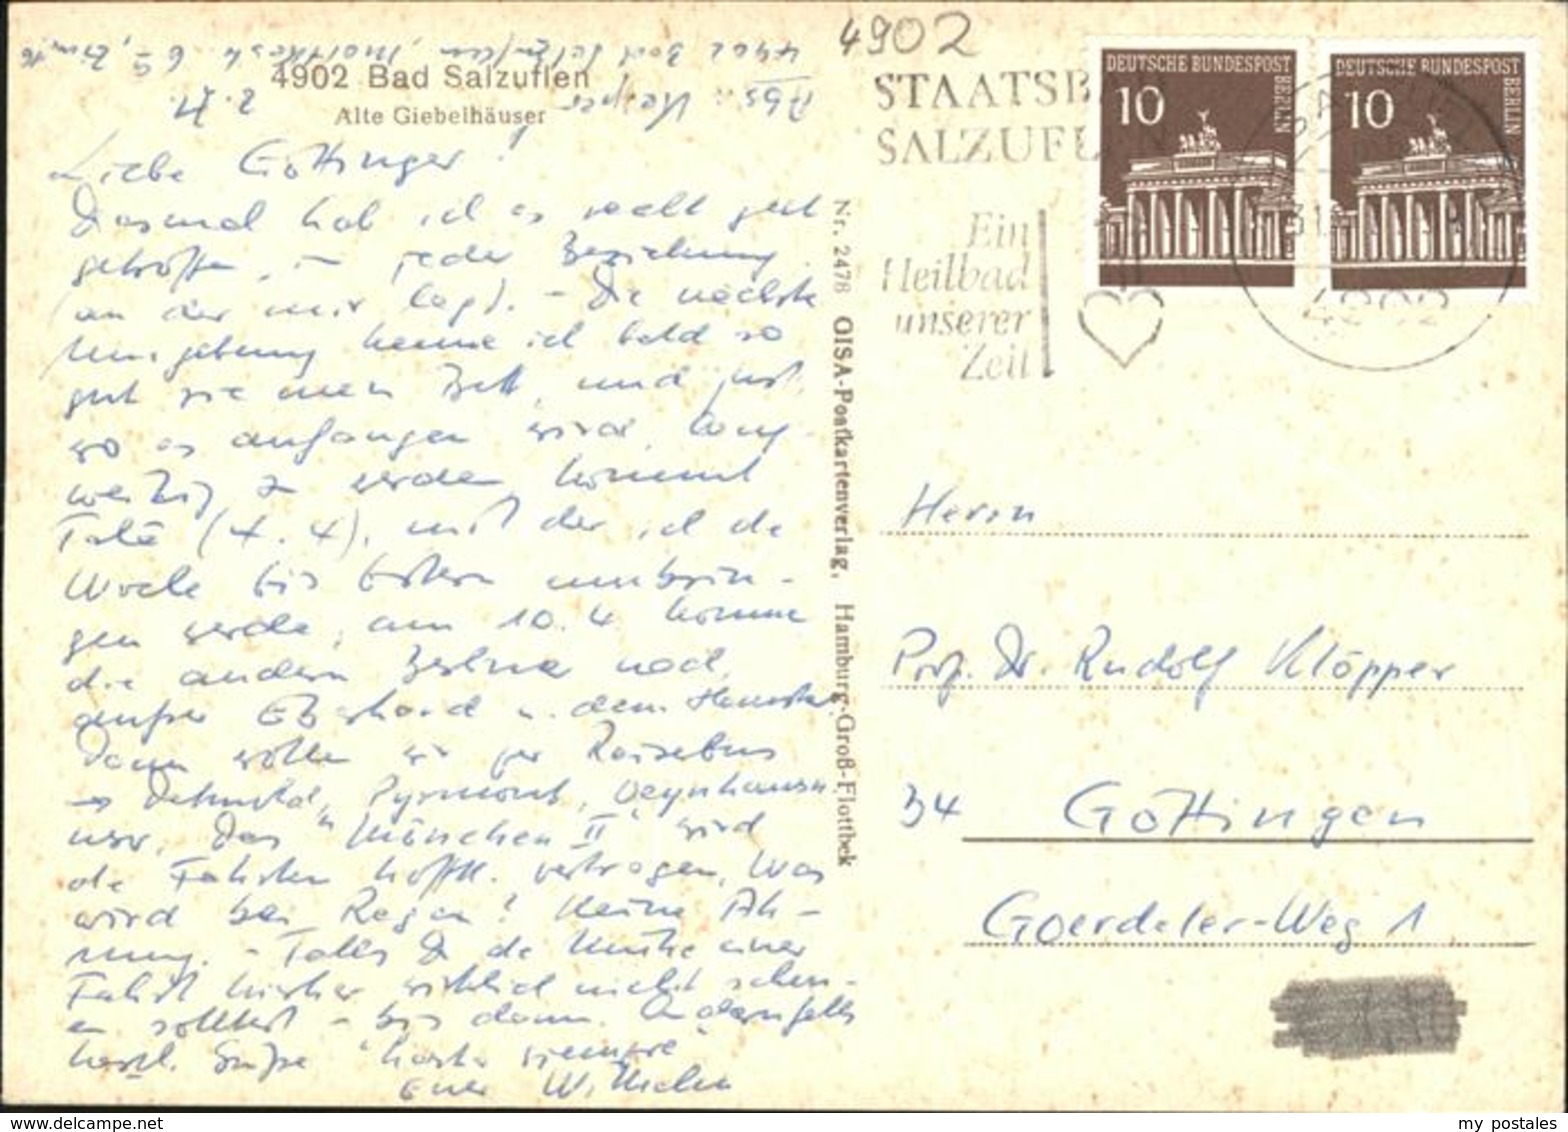 4902
4902 Bad Salzuflen
Alte Giebelhäuser
Liebe Göttinger!
Diesmal hab ich es recht gut
getroffen, in jeder Beziehung
(an der mir liegt). - Die nächste
Umgebung kenne ich bald so
gut wie mein Bett, und just,
wo es anfangen wird, lang-
weilig zu werden kommt
(4. 4), mit der ich die
Woche bis Ostern verbrin-
gen werde, am 10. 4 kommen
die andern Berliner nach,
außer Eberhard u. dem Hamster.
Dann wollen wir per Reisebus
→ Detmold, Pyrmont, Oeynhausen
usw. Das "Mönchen II" wird
die Fahrten hofftl. vertragen, was
wird bei Regen? Keine Ah-
nung. - Falls Du die Mühe einer
Fahrt hierher wirklich nicht scheu-
en solltest - bis dann. Andernfalls
herzl. Grüße "hasta siempre"
Euer Wilhelm
Nr. 2478 GISA-Postkartenverlag, Hamburg-Groß-Flottbek
STAATSB
SALZUFL
Ein
Heilbad
unserer
Zeit
DEUTSCHE BUNDESPOST
BERLIN
10
DEUTSCHE BUNDESPOST
BERLIN
10
4902
Herrn
Prof. Dr. Rudolf Klöpper
34 Göttingen
Goerdeler-Weg 1
my postales